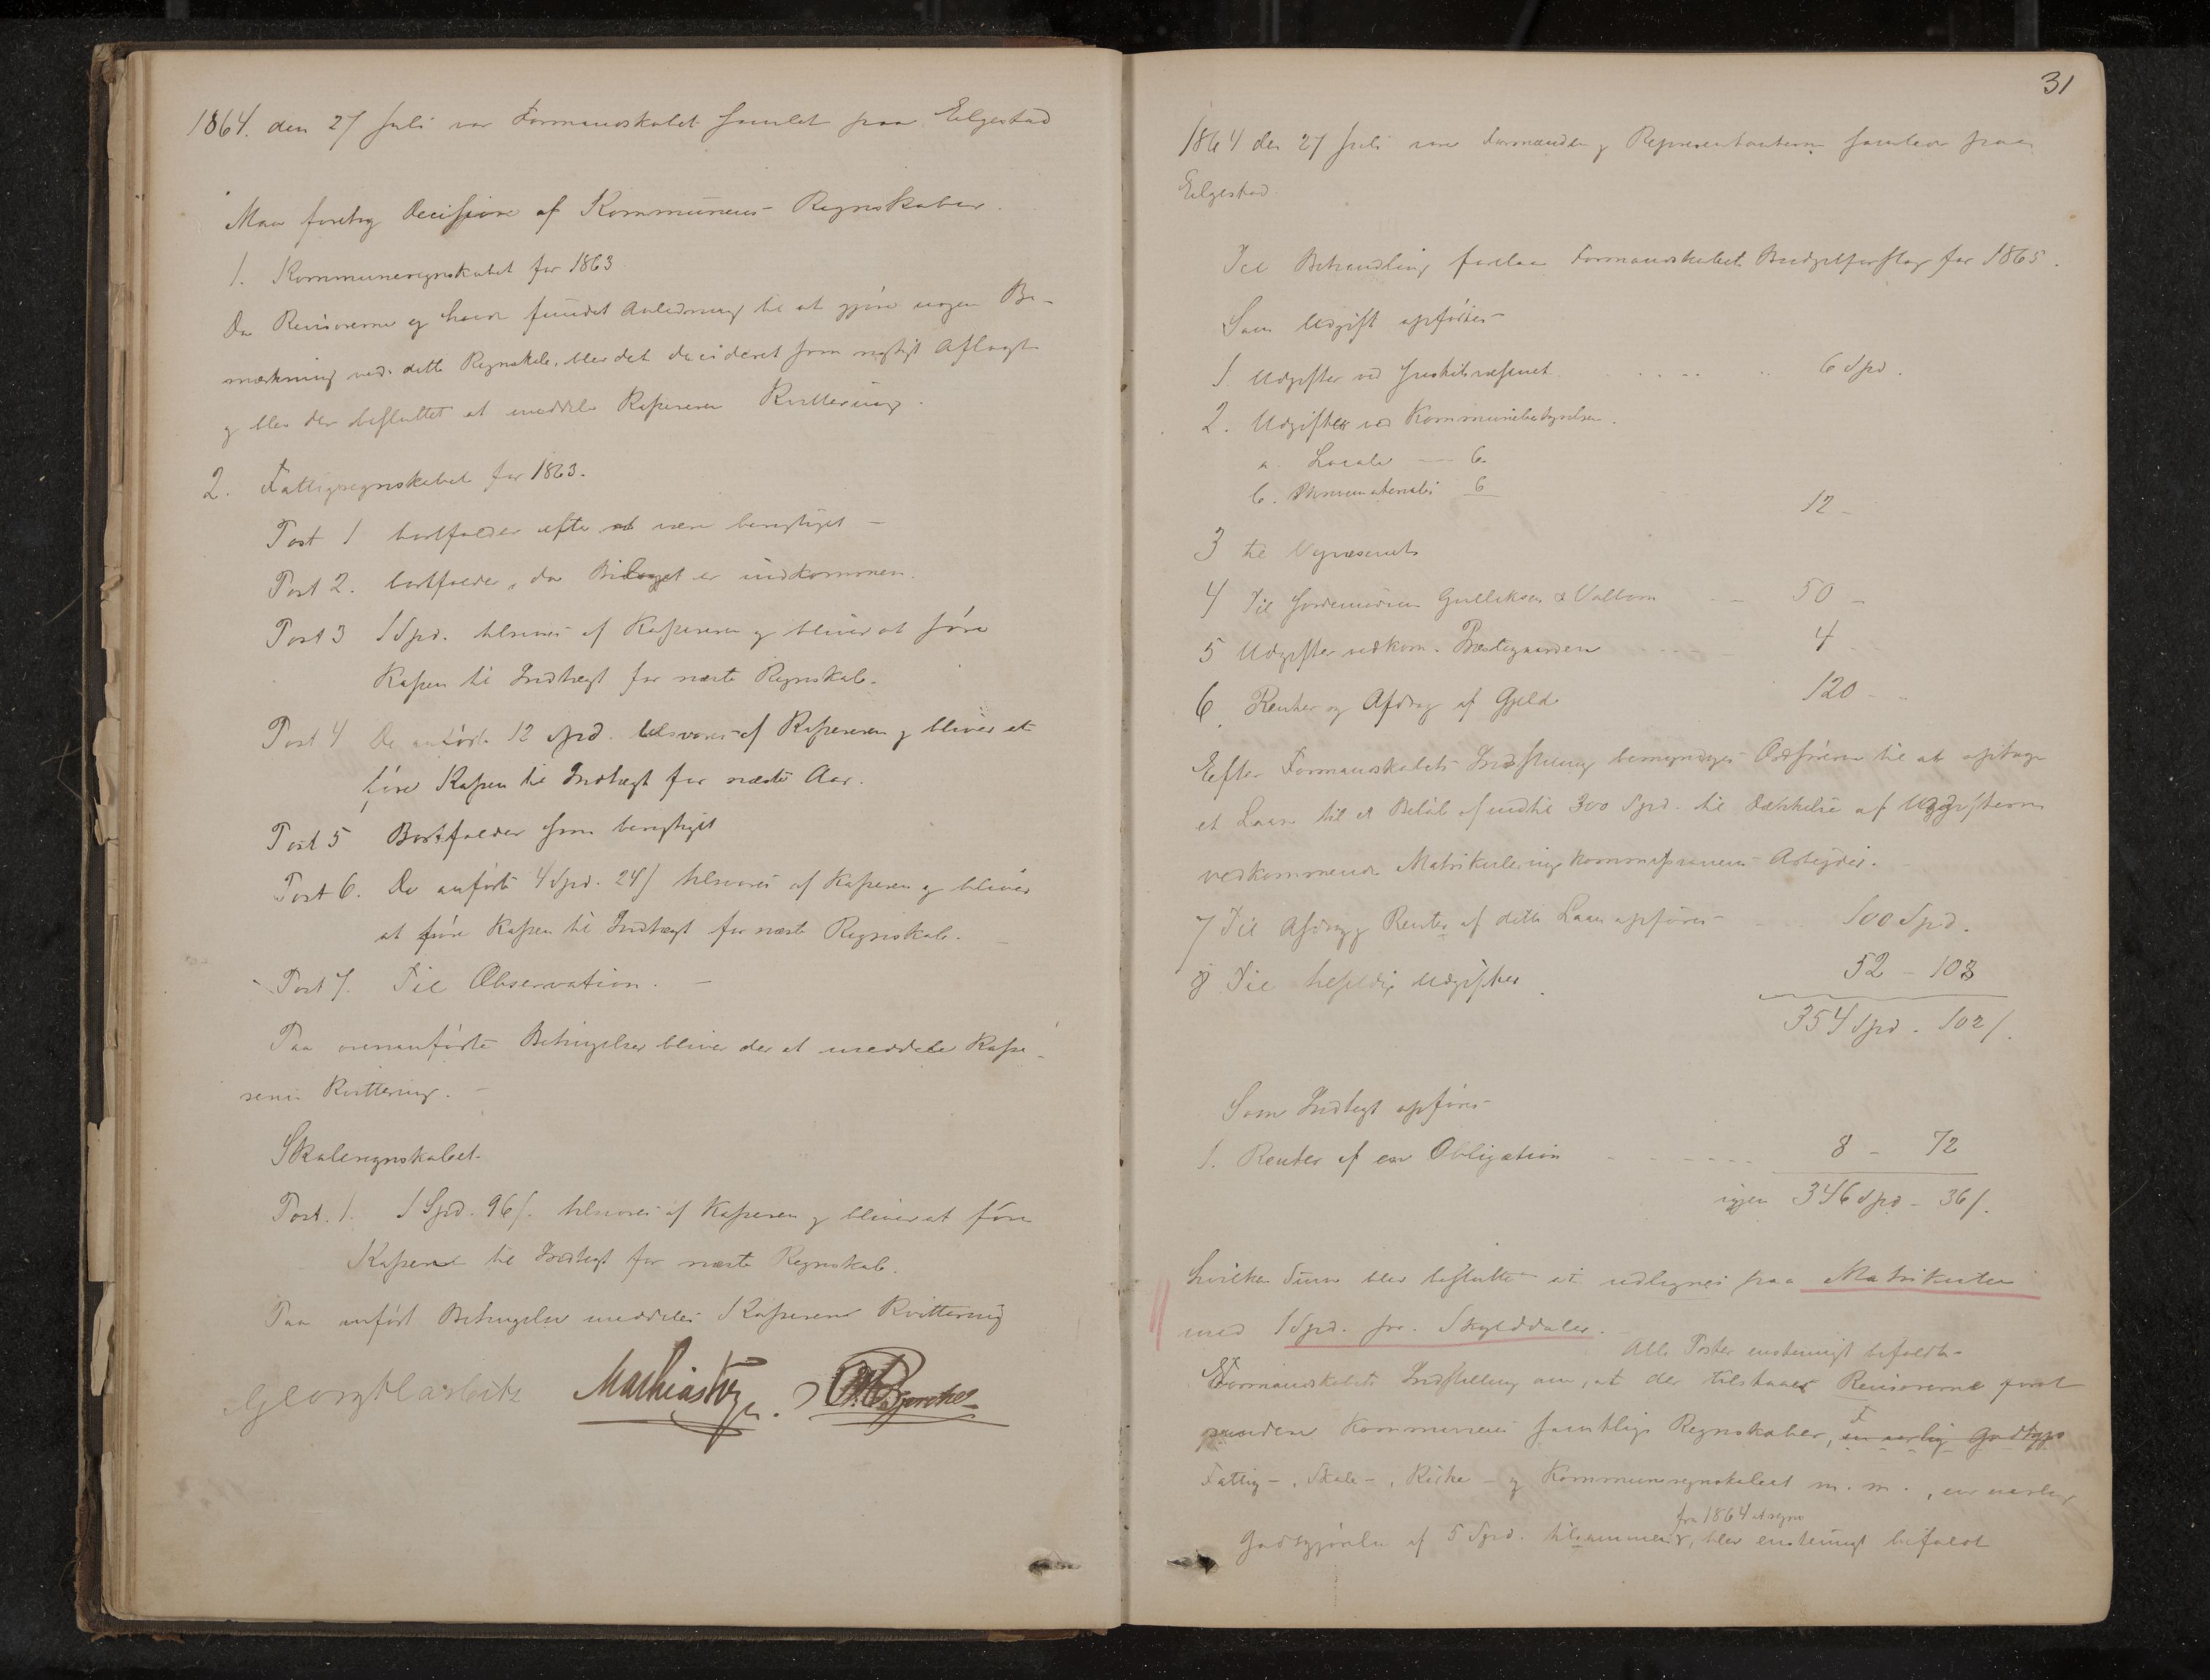 1864. den 27 Juli var Formandskabet samlet paa Eilgestad
Man foretog Decission af Kommunens Regnskaber.
1. Kommuneregnskabet for 1863
Da Revisorerne ej havde fundet Anledning til at gjøre nogen Be-
mærkning ved dette Regnskab, blev det decideret som rigtigt aflagt
og blev der besluttet at meddele Kassereren Kvittering.
2. Fattigregnskabet for 1863.
Post 1 bortfalder efter at være berigtiget –
Post 2. bortfalder, da Bilaget er indkommen.
Post 3 1 Spd. tilsvares af Kassereren og bliver at føre
Kassen til Indtægt for næste Regnskab.
Post 4 De anførte 12 Spd. tilsvares af Kassereren og bliver at
føre Kassen til Indtægt for næste Aar.
Post 5 Bortfalder som berigtiget
Post 6. De anførte 4 Spd. 24 ſ tilsvares af Kasseren og bliver
at føre Kassen til Indtægt for næste Regnskab. –
Post 7. Til Observation. –
Paa ovenanførte Betingelser bliver der at meddele Kasse-
reren Kvittering. –
Skoleregnskabet.
Post. 1. 1 Spd. 96 ſ. tilsvares af Kasseren og bliver at føre
Kassen til Indtægt for næste Regnskab.
Paa anført Betingelse meddeles Kasseren Kvittering
Georg Harbitz Mathias
31
1864 den 27 Juli var Formænden og Repræsentanterne samlede paa
Eilgestad.
Til Behandling forelaa Formandskabets Budgetforslag for 1865.
Som Udgift opførtes
1 Udgifter ved Justitsvæsenet . . . . . 6 Spd.
2. Udgifter ved Kommunebestyrelsen.
a. Locale — 6
b. Skrivematerialier 6
12 –
3 til Veivæsenet
4 Til Jordemødrene Gulliksen & Valbom — 50 –
5 Udgifter vedkom. Præstegaarden . . . 4
6. Renter og Afdrag af Gjeld 120 –
Efter Formandskabets Indstilling bemyndiges Ordføreren til at optage
et Laan til et Beløb af indtil 300 Spd. til Dækkelse af Udgifterne
vedkommende Matrikuleringskommissionens Arbejder.
7 Til Afdrag og Renter af dette Laan opføres – 100 Spd.
8 Til tilfeldige Udgifter 52 – 108
354 Spd. 102 ſ.
Som Indtægt opføres
1. Renter af en Obligation – – – – – 8 – 72
igjen 346 Spd – 36 ſ.
hvilken Sum blev besluttet at udlignes paa Matrikulen
med 1 Spd. pr. Skylddaler.
Alle Poster enstemigt bifaldte
Formandskabets Indstilling om, at der tilstaaes Revisorerne for at
Kommunens samtlige Regnskaber, en aarlig Godtgjø
Fattig –, Skole –, Kirke – og Kommuneregnskabet m. m., en aarlig
fra 1864 at regne
Godtgjørelse af 5 Spd. tilsammen, blev enstemigt bifaldt